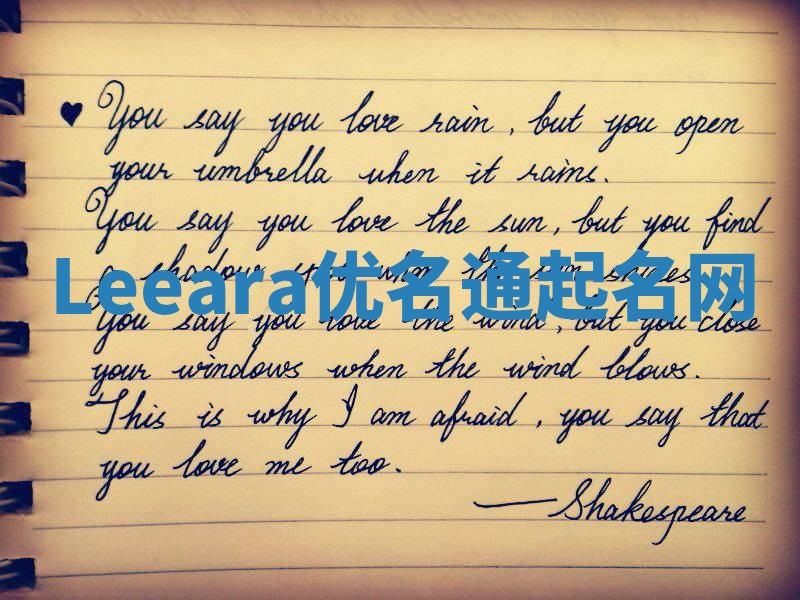 You say you love rain, but you open
your umbrella when it rains.
You say you love the sun, but you find
a shadow spot when the sun shines.
Leeara优名通起名网
You say you love the wind, but you close
your windows when the wind blows.
This is why I am afraid, you say that
you love me too.
—Shakespeare